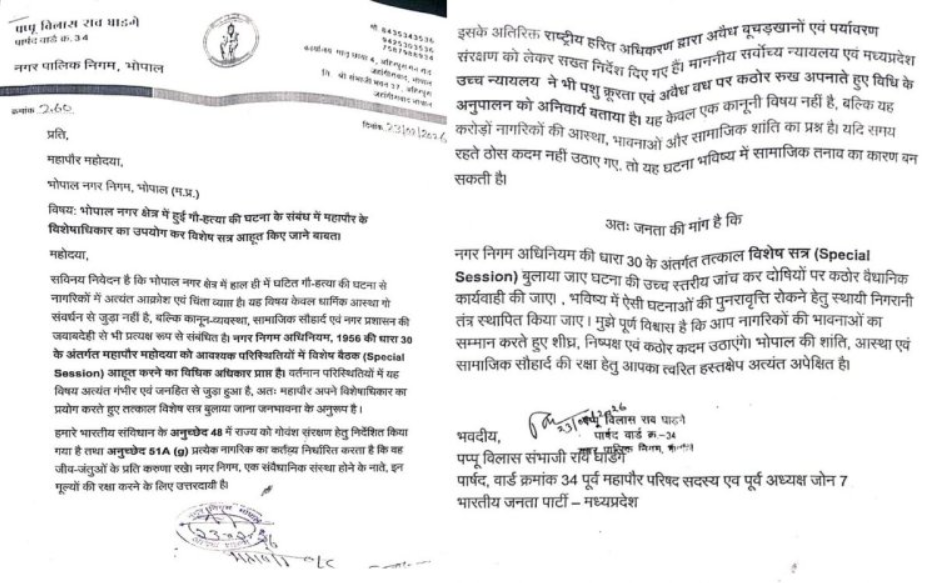 पप्पू विलास राव घाडगे
पार्षद वार्ड क्र. 34
नगर पालिक निगम, भोपाल
मो. 8435343536
9425303536
क्रमांक 260
दिनांक 23/02/2026
प्रति,
महापौर महोदया,
भोपाल नगर निगम, भोपाल (म.प्र.)
विषय: भोपाल नगर क्षेत्र में हुई गौ-हत्या की घटना के संबंध में महापौर के
विशेषाधिकार का उपयोग कर विशेष सत्र आहूत किए जाने बाबत।
महोदया,
सविनय निवेदन है कि भोपाल नगर क्षेत्र में हाल ही में घटित गौ-हत्या की घटना से
नागरिकों में अत्यंत आक्रोश एवं चिंता व्याप्त है। यह विषय केवल धार्मिक आस्था गो
संवर्धन से जुड़ा नहीं है, बल्कि कानून-व्यवस्था, सामाजिक सौहार्द एवं नगर प्रशासन की
जवाबदेही से भी प्रत्यक्ष रूप से संबंधित है। नगर निगम अधिनियम, 1956 की धारा 30
के अंतर्गत महापौर महोदया को आवश्यक परिस्थितियों में विशेष बैठक (Special
Session) आहूत करने का विधिक अधिकार प्राप्त है। वर्तमान परिस्थितियों में यह
विषय अत्यंत गंभीर एवं जनहित से जुड़ा हुआ है, अतः महापौर अपने विशेषाधिकार का
प्रयोग करते हुए तत्काल विशेष सत्र बुलाया जाना जनभावना के अनुरूप है।
हमारे भारतीय संविधान के अनुच्छेद 48 में राज्य को गोवंश संरक्षण हेतु निर्देशित किया
गया है तथा अनुच्छेद 51A (g) प्रत्येक नागरिक का कर्तव्य निर्धारित करता है कि वह
जीव-जंतुओं के प्रति करुणा रखे। नगर निगम, एक संवैधानिक संस्था होने के नाते, इन
मूल्यों की रक्षा करने के लिए उत्तरदायी है।
इसके अतिरिक्त राष्ट्रीय हरित अधिकरण द्वारा अवैध बूचड़खानों एवं पर्यावरण
संरक्षण को लेकर सख्त निर्देश दिए गए हैं। माननीय सर्वोच्च न्यायालय एवं मध्यप्रदेश
उच्च न्यायालय ने भी पशु क्रूरता एवं अवैध वध पर कठोर रुख अपनाते हुए विधि के
अनुपालन को अनिवार्य बताया है। यह केवल एक कानूनी विषय नहीं है, बल्कि यह
करोड़ों नागरिकों की आस्था, भावनाओं और सामाजिक शांति का प्रश्न है। यदि समय
रहते ठोस कदम नहीं उठाए गए, तो यह घटना भविष्य में सामाजिक तनाव का कारण बन
सकती है।
अतः जनता की मांग है कि
नगर निगम अधिनियम की धारा 30 के अंतर्गत तत्काल विशेष सत्र (Special
Session) बुलाया जाए घटना की उच्च स्तरीय जांच कर दोषियों पर कठोर वैधानिक
कार्यवाही की जाए। , भविष्य में ऐसी घटनाओं की पुनरावृत्ति रोकने हेतु स्थायी निगरानी
तंत्र स्थापित किया जाए। मुझे पूर्ण विश्वास है कि आप नागरिकों की भावनाओं का
सम्मान करते हुए शीघ्र, निष्पक्ष एवं कठोर कदम उठाएंगे। भोपाल की शांति, आस्था एवं
सामाजिक सौहार्द की रक्षा हेतु आपका त्वरित हस्तक्षेप अत्यंत अपेक्षित है।
पप्पू विलास राव घाडगे
पार्षद वार्ड क्र-34
भवदीय,
पप्पू विलास संभाजी राव घाडगे
पार्षद, वार्ड क्रमांक 34 पूर्व महापौर परिषद सदस्य एव पूर्व अध्यक्ष जोन 7
भारतीय जनता पार्टी – मध्यप्रदेश